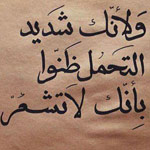 وَلأنّك شَديد
التحَمل ظنّوا
بأنّك لاَتشعُرْ